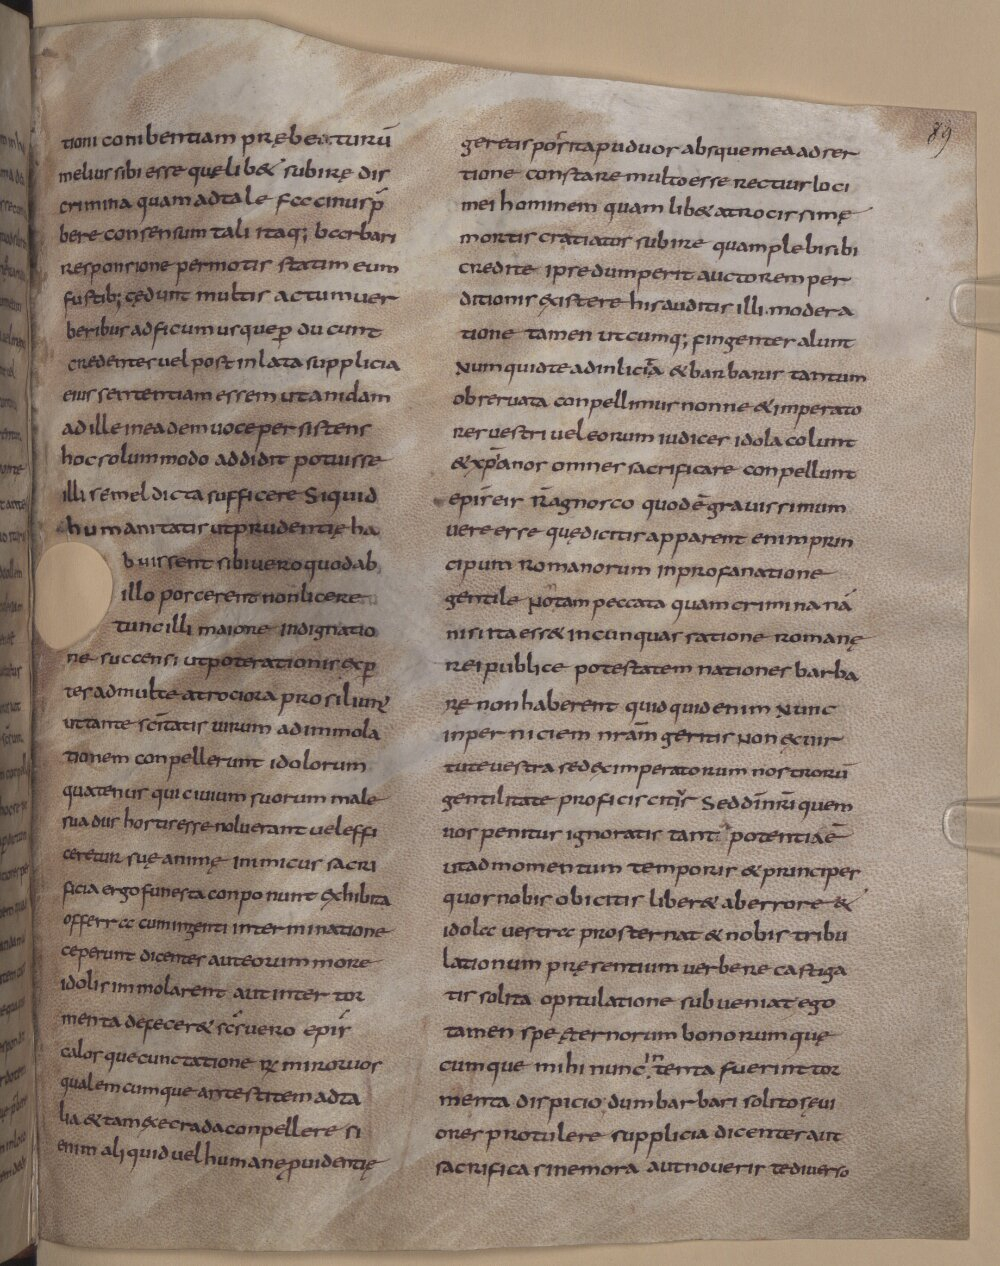 89
tioni conibentiam prębeaturū
melius sibi esse quelib& subire dis
crimina quam ad tale faccinus p̄
bere consensum tali itaq; barbari
responsione permotis statim eum
fustib; cędunt multis actum ver
beribus ad ficum usque ꝑducunt
credentes vel post inlata supplicia
eius sententiam essem utanidam
ad ille in eadem voce persistens
hoc solummodo addidit potuisse
illi semel dicta sufficere Siquid
humanitatis ut prudentię ha
buissent sibi vero quod ab
illo poscerent non licere
tunc illi maiore indignatio
ne succensi utpote rationis exꝑ
tes ad multe atrociora prosiliunt
ut tante scītatis virum ad immola
tionem conpellerunt idolorum
quatenus qui civium suorum male
suadus hostis esse noluerant vel effi
ceretur suę animę inimicus sacri
ficia ergo funesta conponunt exhibita
offerra cum ingenti interminatione
ceperunt dicentes aut eorum more
idolis immolarent aut inter tor
menta defecer& scs̄ vero epis̄
calos que cunctatione
qualemcumque antestitem ad ta
lia & tam execrada conpellere si
enim aliquid vel humane ꝓvidentię
geretis posita pud vos absque mea adser
tione constare multo esse rectius loci
mei hominem quam lib& atrocissimę
mortis cratiatus subire quam plebi sibi
credite ipse dum perit auctorem per
ditionis existere his auditis illi modera
tione tamen utcumq; fingenter alunt
Numquid te ad inlicita & barbaris tantum
observata conpellimus nonne & imperato
res vestri vel eorum iudices idola colunt
& xp̄anos omnes sacrificare conpellunt
epis̄ eis Rāgnosco quod ē gravissimum
vere esse quę dicitis apparent enim prin
cipum romanorum in profanatione
gentile Nō tam peccata quam crimina nā
nisi ita ess& in cunquassatione romanę
rei publice potestatem nationes barba
rę non haberent quidquid enim Nunc
in perniciem nrām geritis Non ex vir
tute vestra sed ex imperatorum nostrorū
gentilitate proficiscitur Sed dn̄s nr̄i quem
vos penitus ignoratis tant potentiae
ut ad momentum temporis & principes
quos nobis obicitis liber& ab errore &
idola vestra prosternat & nobis tribu
lationum pręsentium verbere castiga
tis solita opitulatione subveniat ego
tamen spe ęternorum bonorum quę
cumque mihi nunc intenta fuerint tor
menta dispicio dum barbari solito sevi
ores protulere supplicia dicentes aut
sacrifica sine mora aut noveris te diverso